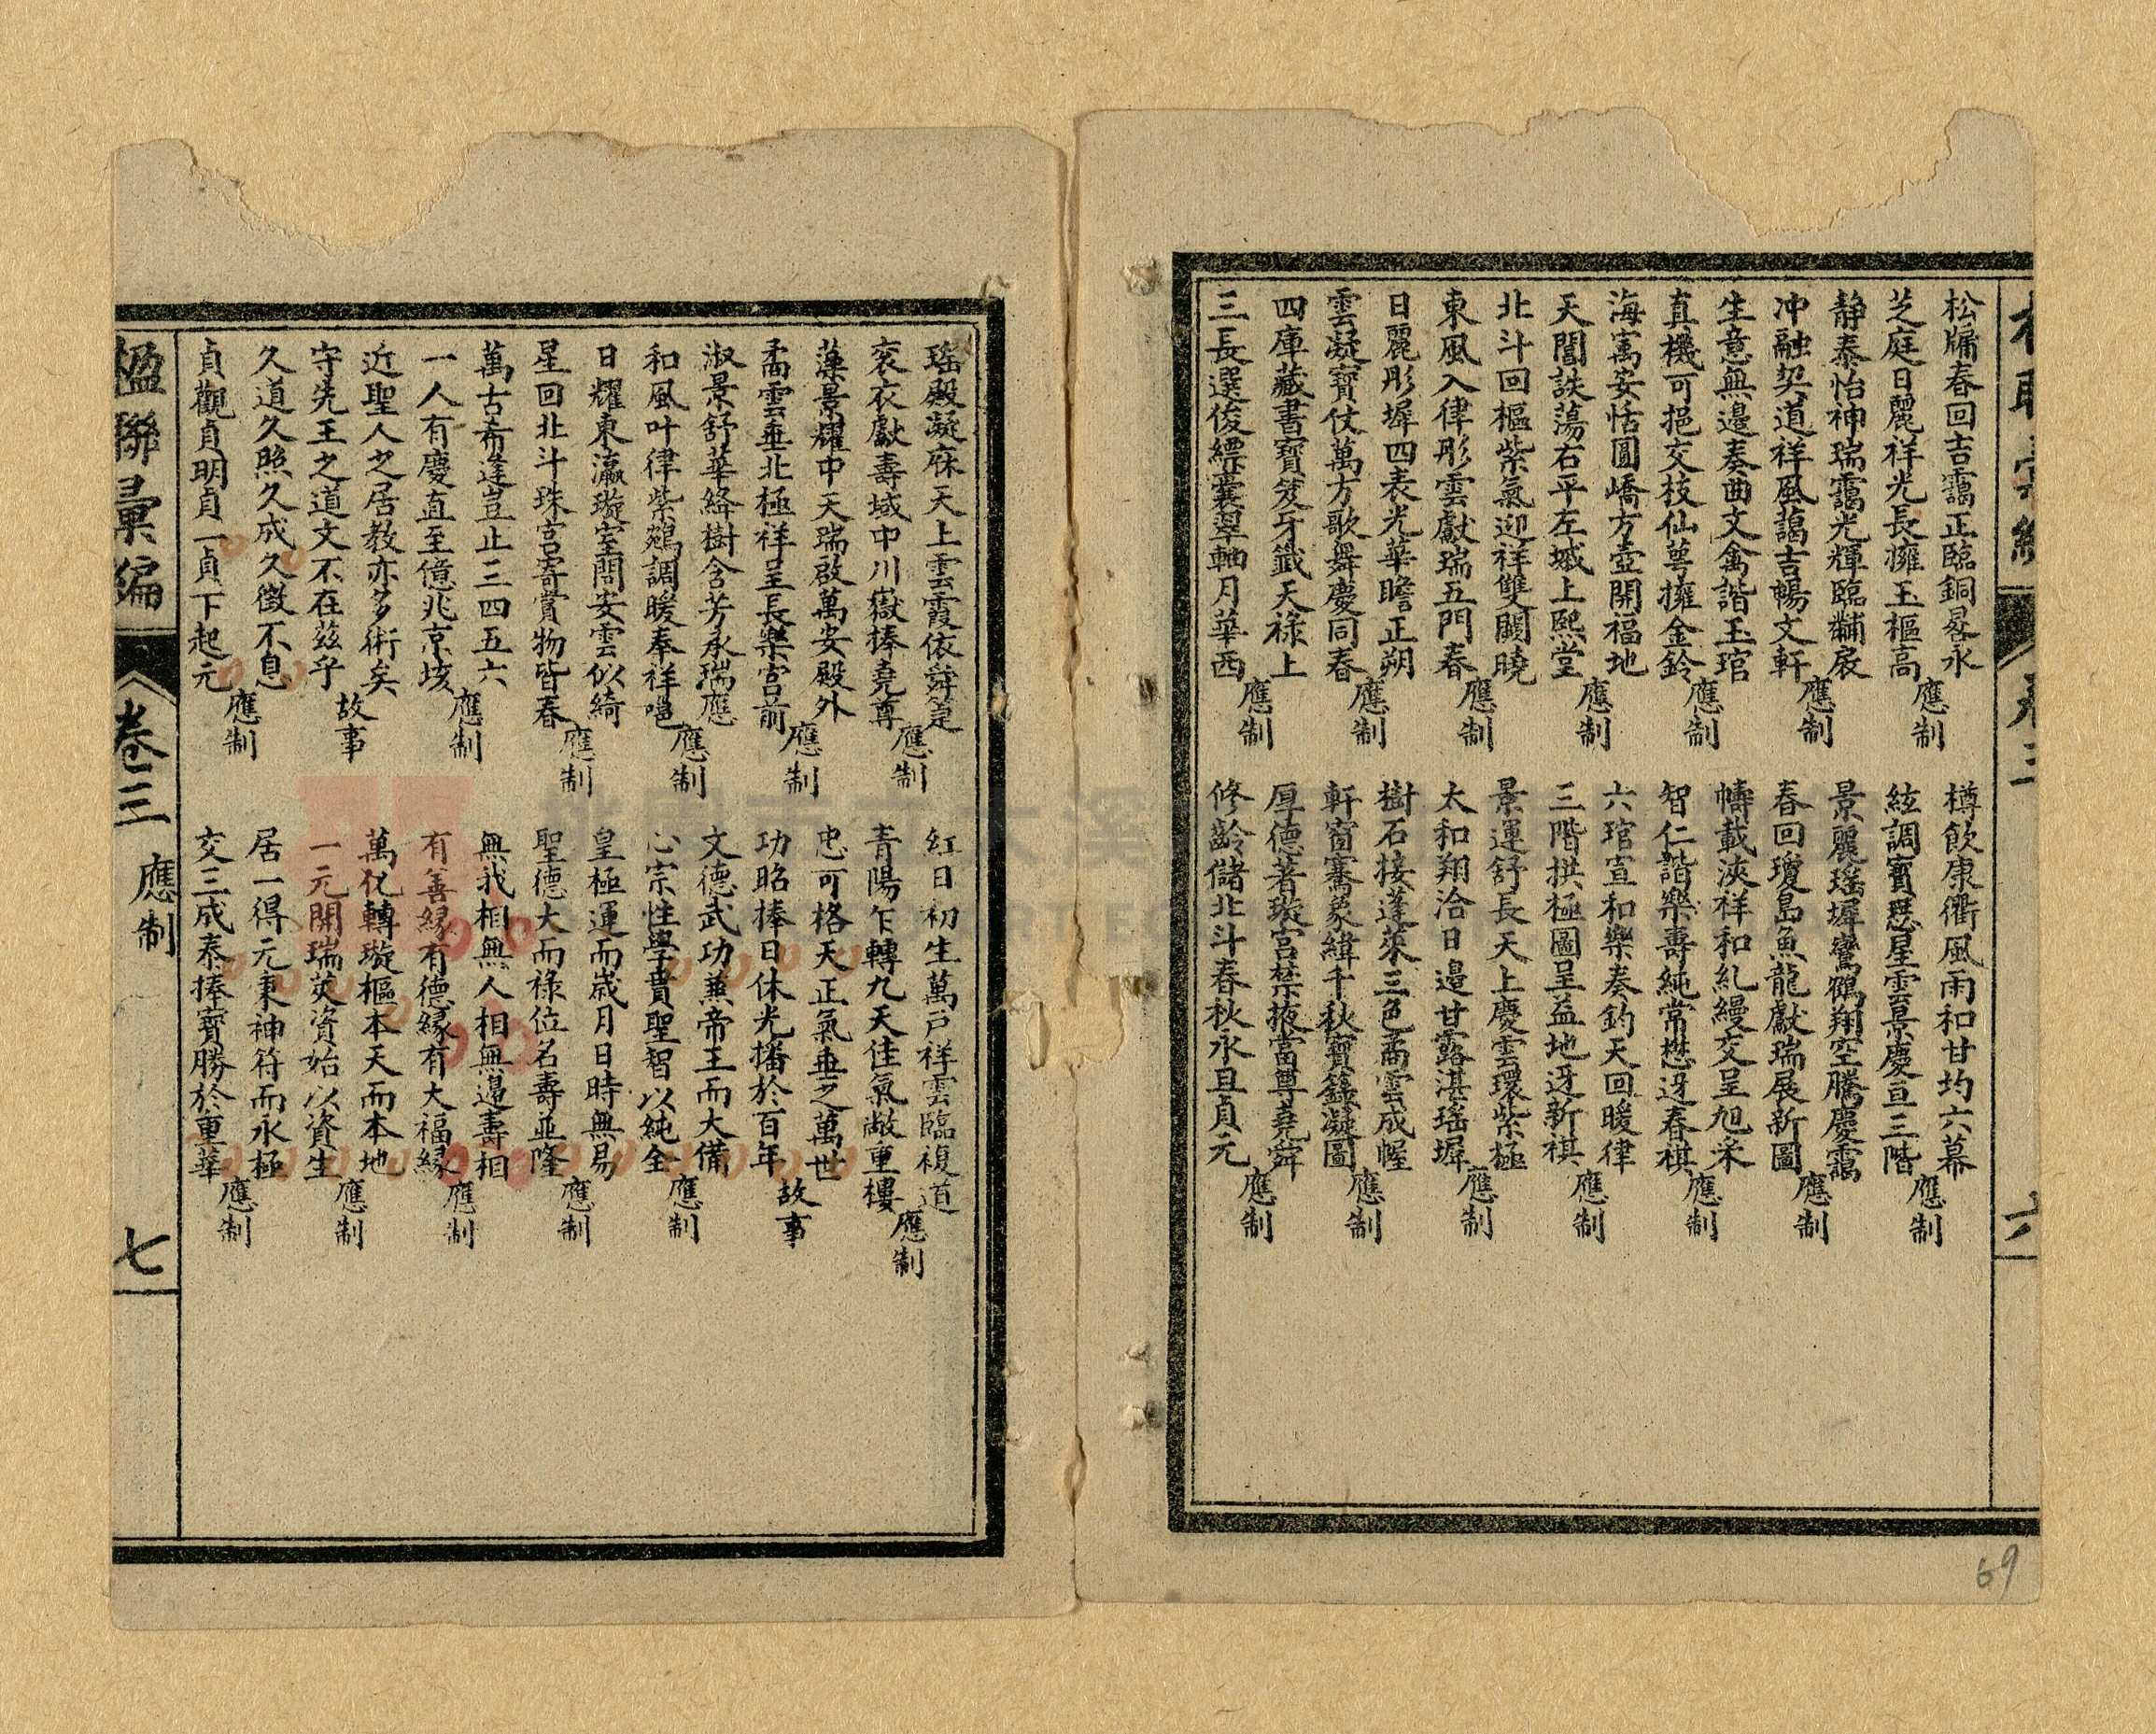 松牖春回吉靄正臨銅晷永
芝庭日麗祥光長擁玉樞高
應制
静泰怡神瑞靄光輝臨黼扆
冲融契道祥風藹吉暢文軒
應制
生意無邊奏曲文禽諧玉琯
真機可挹交枝仙萼擁金鈴
應制
海寓安恬圓嶠方壺開福地
天閶詄蕩右平左墄上熙堂
應制
北斗回樞紫氣迎祥雙闕曉
東風入律彤雲獻瑞五門春
應制
日麗彤墀四表光華瞻正朔
雲凝寶仗萬方歌舞慶同春
應制
四庫藏書寶笈牙籤天祿上
三長選俊縹囊翠軸月華西
應制
樽飲康衢風雨和甘均六幕
絃調寶瑟星雲景慶亘三階
應制
景麗瑤墀鸞鶴翔空騰慶靄
春回瓊島魚龍獻瑞展新圖
應制
幬載浹祥和糺縵交呈旭采
智仁諧樂壽純常懋迓春祺
應制
六琯宣和樂奏鈞天回暖律
三階拱極圖呈益地迓新祺
應制
景運舒長天上慶雲環紫極
太和翔洽日邊甘露湛瑤墀
應制
樹石接蓬萊三色矞雲成幄
軒窗騫象緯千秋寶籙凝圖
應制
厚德著璇宮禁掖當尊堯舜
修齡儲北斗春秋永且貞元
應制
六
69
瑤殿凝庥天上雲霞依舜筵
袞衣獻壽域中川嶽捧堯尊
應制
藻景耀中天瑞啟萬安殿外
矞雲垂北極祥呈長樂宮前
應制
淑景舒華絳樹含芳承瑞應
和風叶律紫鷄調暖奉祥㫤
應制
日耀東瀛璇室問安雲似綺
星回北斗珠宮寄賞物皆春
應制
萬古希逢豈止三四五六
一人有慶直至億兆京垓
應制
近聖人之居教亦多術矣
守先王之道文不在茲乎
故事
久道久照久成久徵不息
貞觀貞明貞一貞下起元
應制
紅日初生萬戶祥雲臨複道
青陽乍轉九天佳氣敞重樓
應制
忠可格天正氣垂之萬世
功昭捧日休光播於百年
故事
文德武功兼帝王而大備
心宗性學貫聖智以純全
應制
皇極運而歲月日時無易
聖德大而祿位名壽並隆
應制
無我相無人相無邊壽相
有善緣有德緣有大福緣
應制
萬化轉璇樞本天而本地
一元開瑞莢資始以資生
應制
居一得元秉神符而永極
交三成泰捧寶勝於重華
應制
楹聯彙編
卷三
應制
七